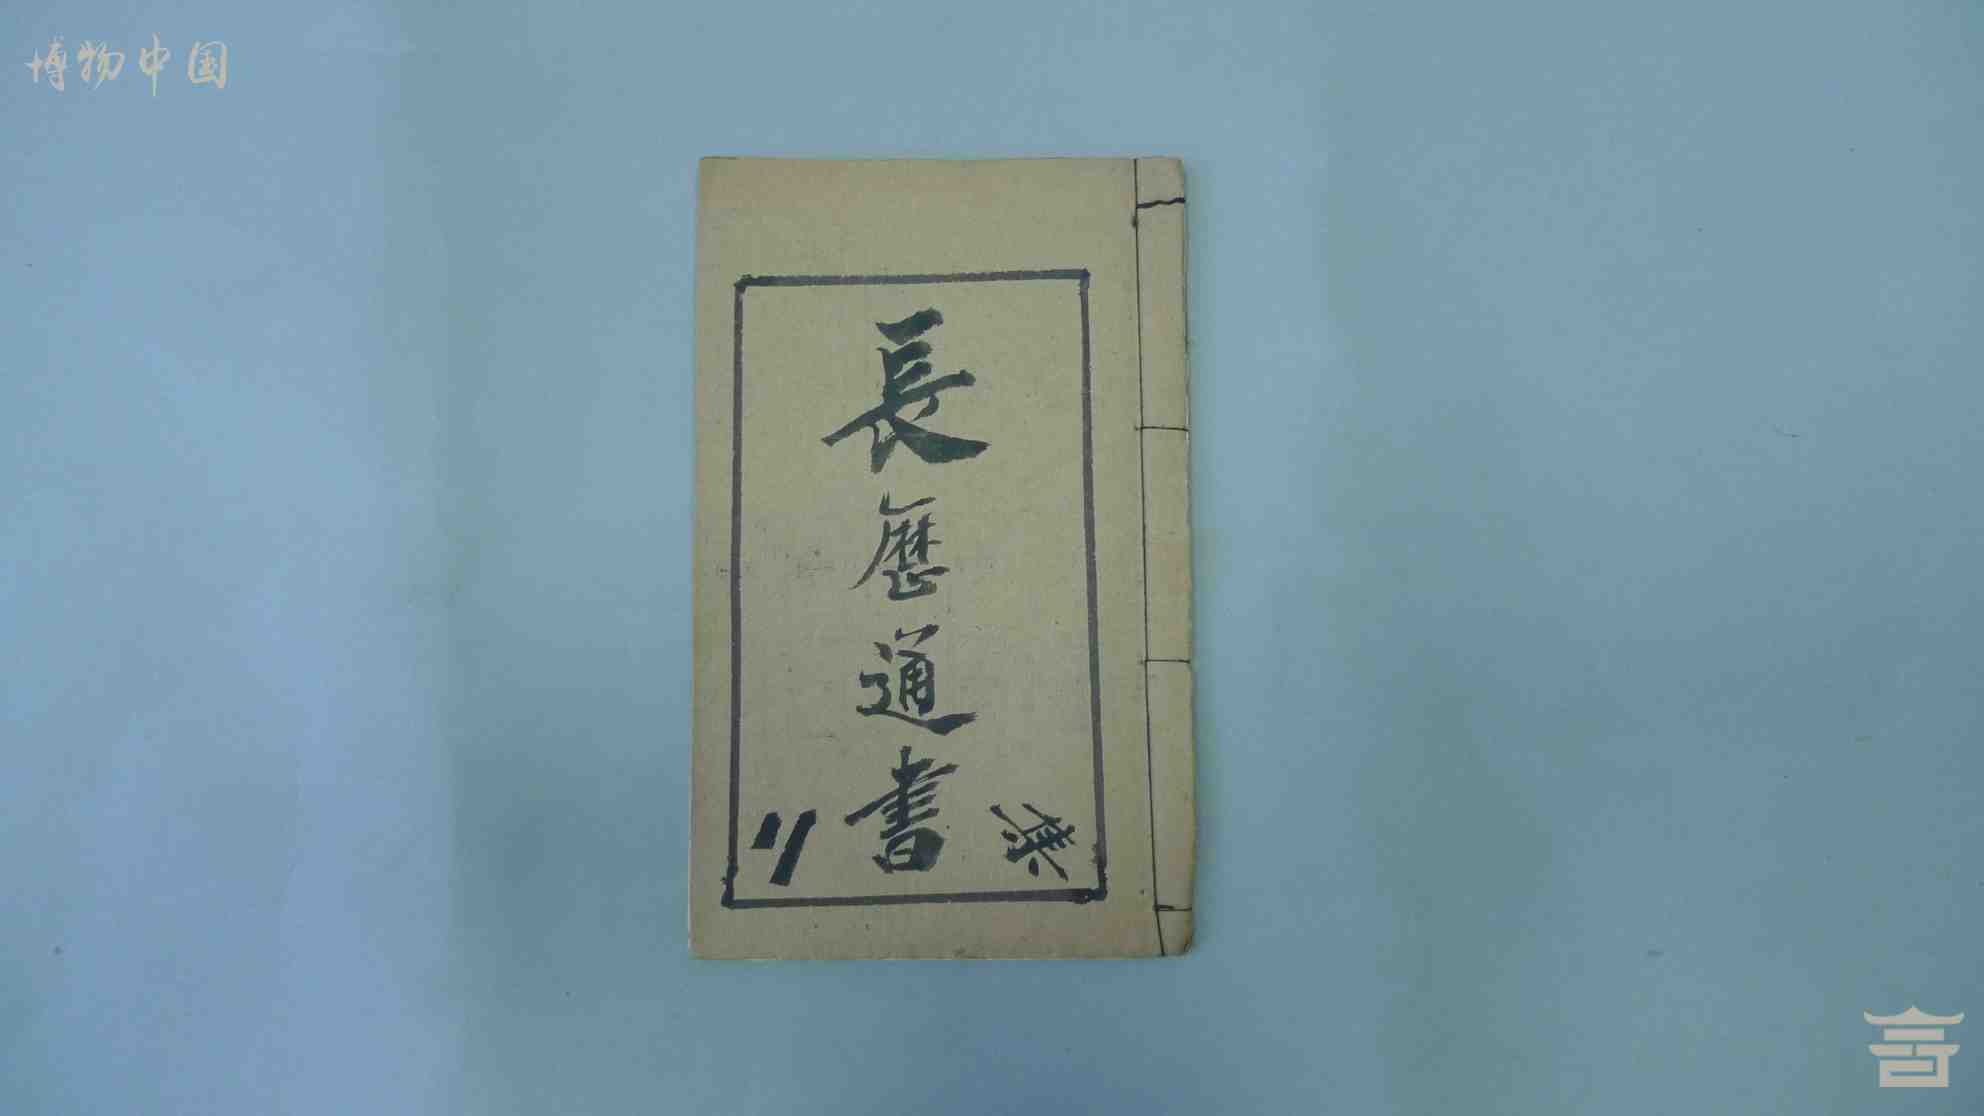 博物中国
長歷通書
集